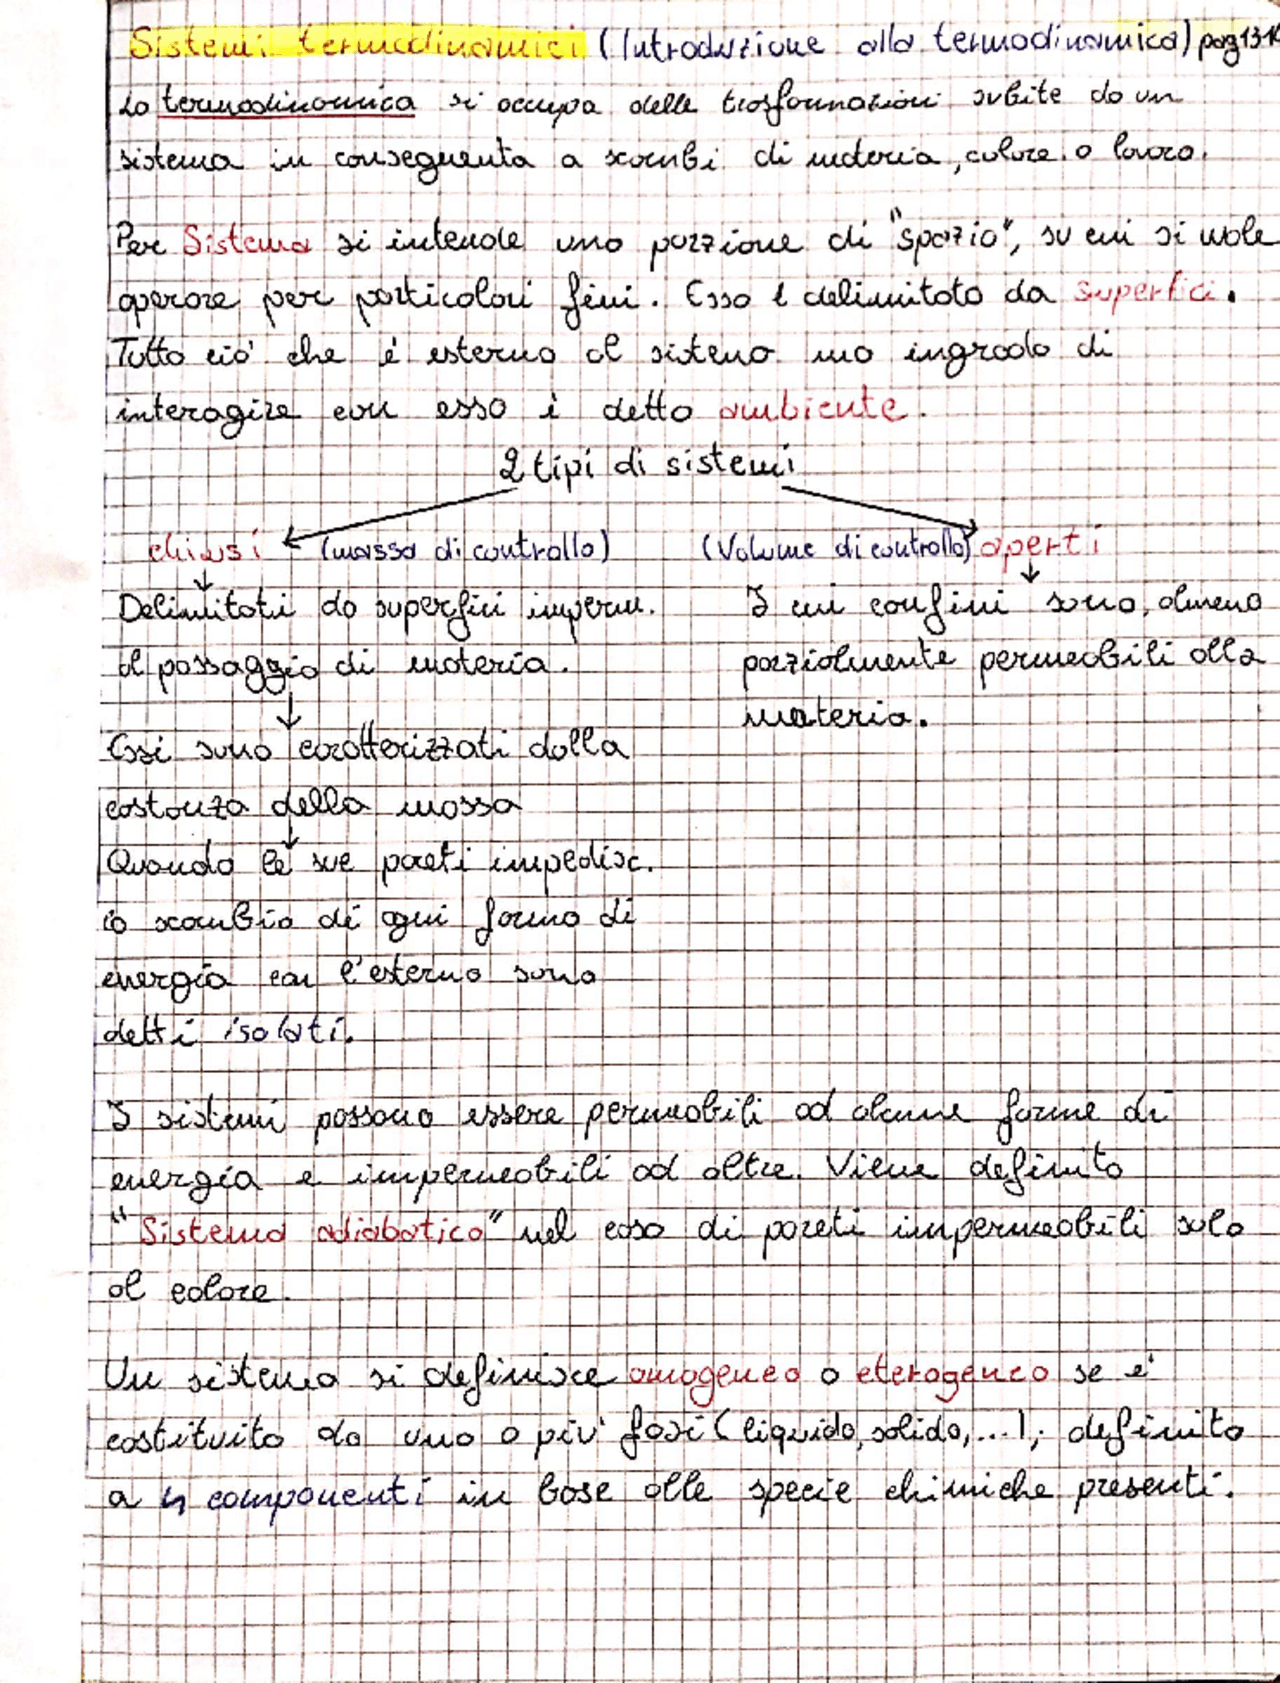 Sistemi termodinamici (Introduzione alla termodinamica) pag 13-16
La termodinamica si occupa delle trasformazioni subite da un
sistema in conseguenza a scambi di materia, calore o lavoro.
Per Sistema si intende una porzione di "spazio", su cui si vuole
operare per particolari fini. Esso è delimitato da superfici.
Tutto ciò che è esterno al sistema ma in grado di
interagire con esso è detto ambiente.
2 tipi di sistemi
chiusi (massa di controllo) (Volume di controllo) aperti
Delimitati da superfici imperm.
al passaggio di materia.
Essi sono caratterizzati dalla
costanza della massa
Quando le sue pareti impedisc.
lo scambio di ogni forma di
energia con l'esterno sono
detti isolati.
I cui confini sono, almeno
parzialmente permeabili alla
materia.
I sistemi possono essere permeabili ad alcune forme di
energia e impermeabili ad altre. Viene definito
"Sistema adiabatico" nel caso di pareti impermeabili solo
al calore.
Un sistema si definisce omogeneo o eterogeneo se è
costituito da una o più fasi (liquido, solido, ...); definito
a n componenti in base alle specie chimiche presenti.